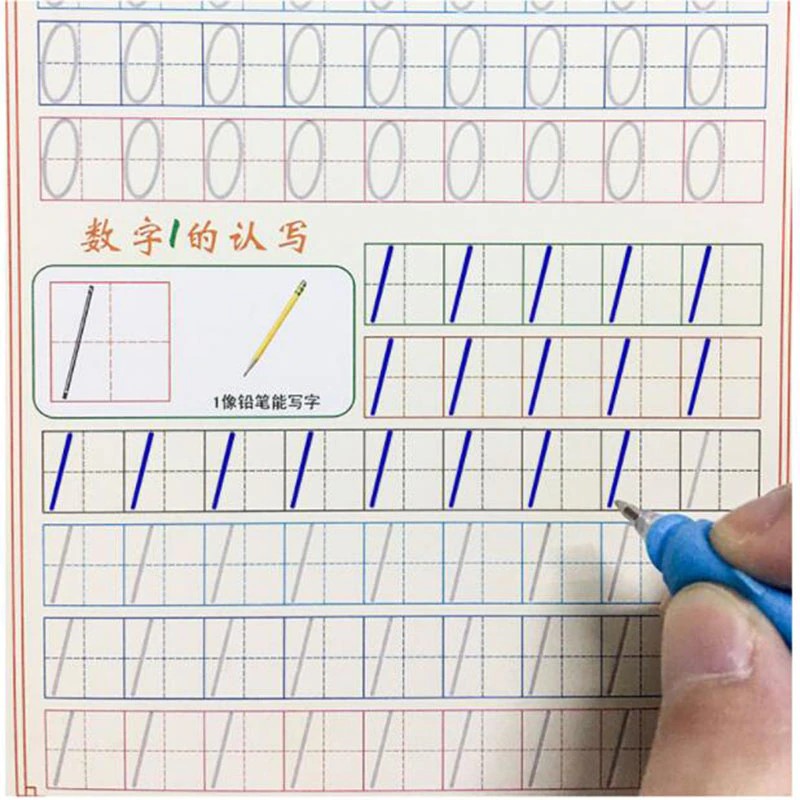 0 0 0 0 0 0 0 0 0
0 0 0 0 0 0 0 0 0
数字1的认写
1 1 1 1 1
1
1像铅笔能写字
1 1 1 1 1
1 1 1 1 1 1 1 1 1
1 1 1 1 1 1 1 1
1 1 1 1 1 1 1 1
1 1 1 1 1 1 1 1